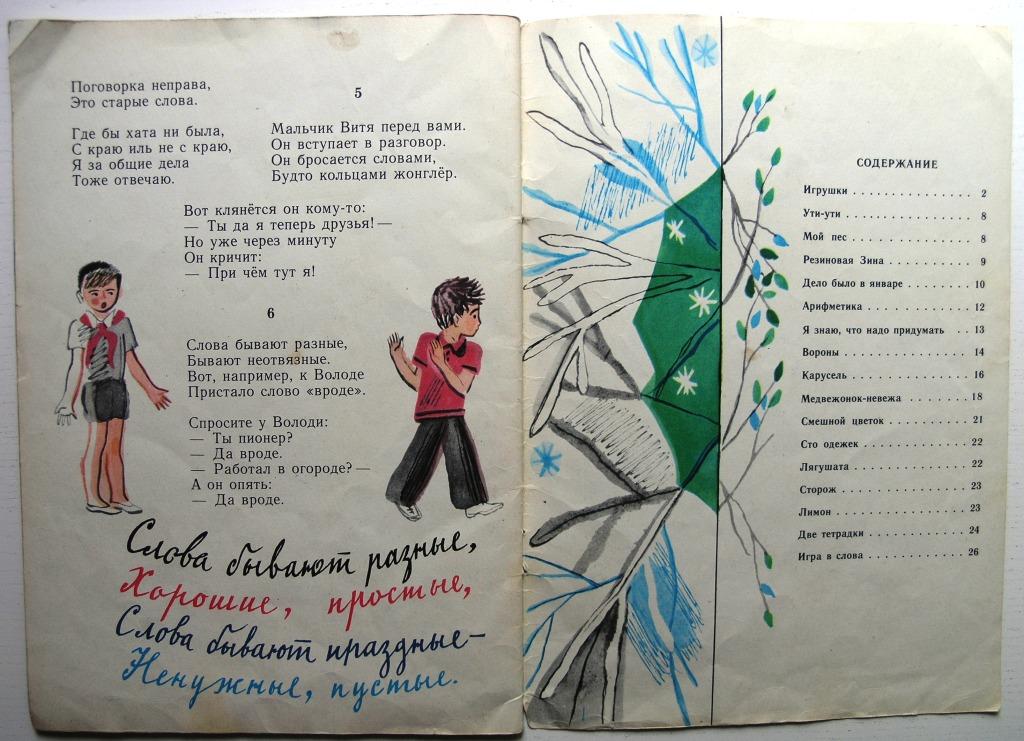 Поговорка неправа,
Это старые слова.
Где бы хата ни была,
С краю иль не с краю,
Я за общие дела
Тоже отвечаю.
5
Мальчик Витя перед вами.
Он вступает в разговор.
Он бросается словами,
Будто кольцами жонглёр.
Вот клянётся он кому-то:
— Ты да я теперь друзья! —
Но уже через минуту
Он кричит:
— При чём тут я!
6
Слова бывают разные,
Бывают неотвязные.
Вот, например, к Володе
Пристало слово «вроде».
Спросите у Володи:
— Ты пионер?
— Да вроде.
— Работал в огороде? —
А он опять:
— Да вроде.
Слова бывают разные,
Хорошие, простые,
Слова бывают праздные —
Ненужные, пустые.
СОДЕРЖАНИЕ
Игрушки . . . . . . . . . . . . . . . 2
Ути-ути . . . . . . . . . . . . . . . 8
Мой пес . . . . . . . . . . . . . . . 8
Резиновая Зина . . . . . . . . . . 9
Дело было в январе . . . . . . . . 10
Арифметика . . . . . . . . . . . . 12
Я знаю, что надо придумать . . 13
Вороны . . . . . . . . . . . . . . . 14
Карусель . . . . . . . . . . . . . . 16
Медвежонок-невежа . . . . . . . . 18
Смешной цветок . . . . . . . . . . 21
Сто одежек . . . . . . . . . . . . . 22
Лягушата . . . . . . . . . . . . . . 22
Сторож . . . . . . . . . . . . . . . 23
Лимон . . . . . . . . . . . . . . . . 23
Две тетрадки . . . . . . . . . . . . 24
Игра в слова . . . . . . . . . . . . 26